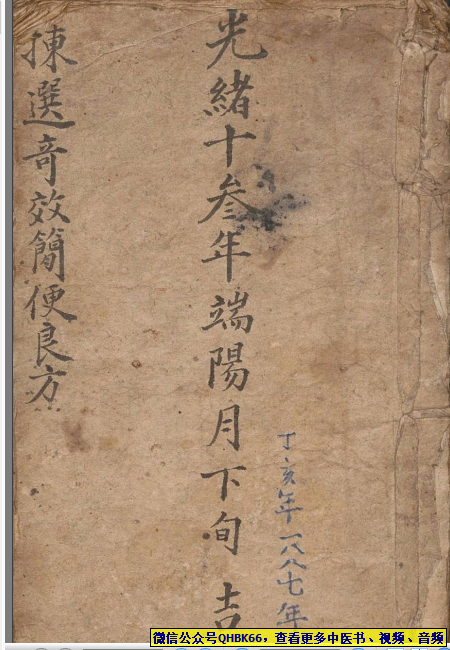 丁亥年一八八七年
光緒十叁年端陽月下旬 吉
揀選奇效簡便良方
微信公众号QHBK66，查看更多中医书、视频、音频